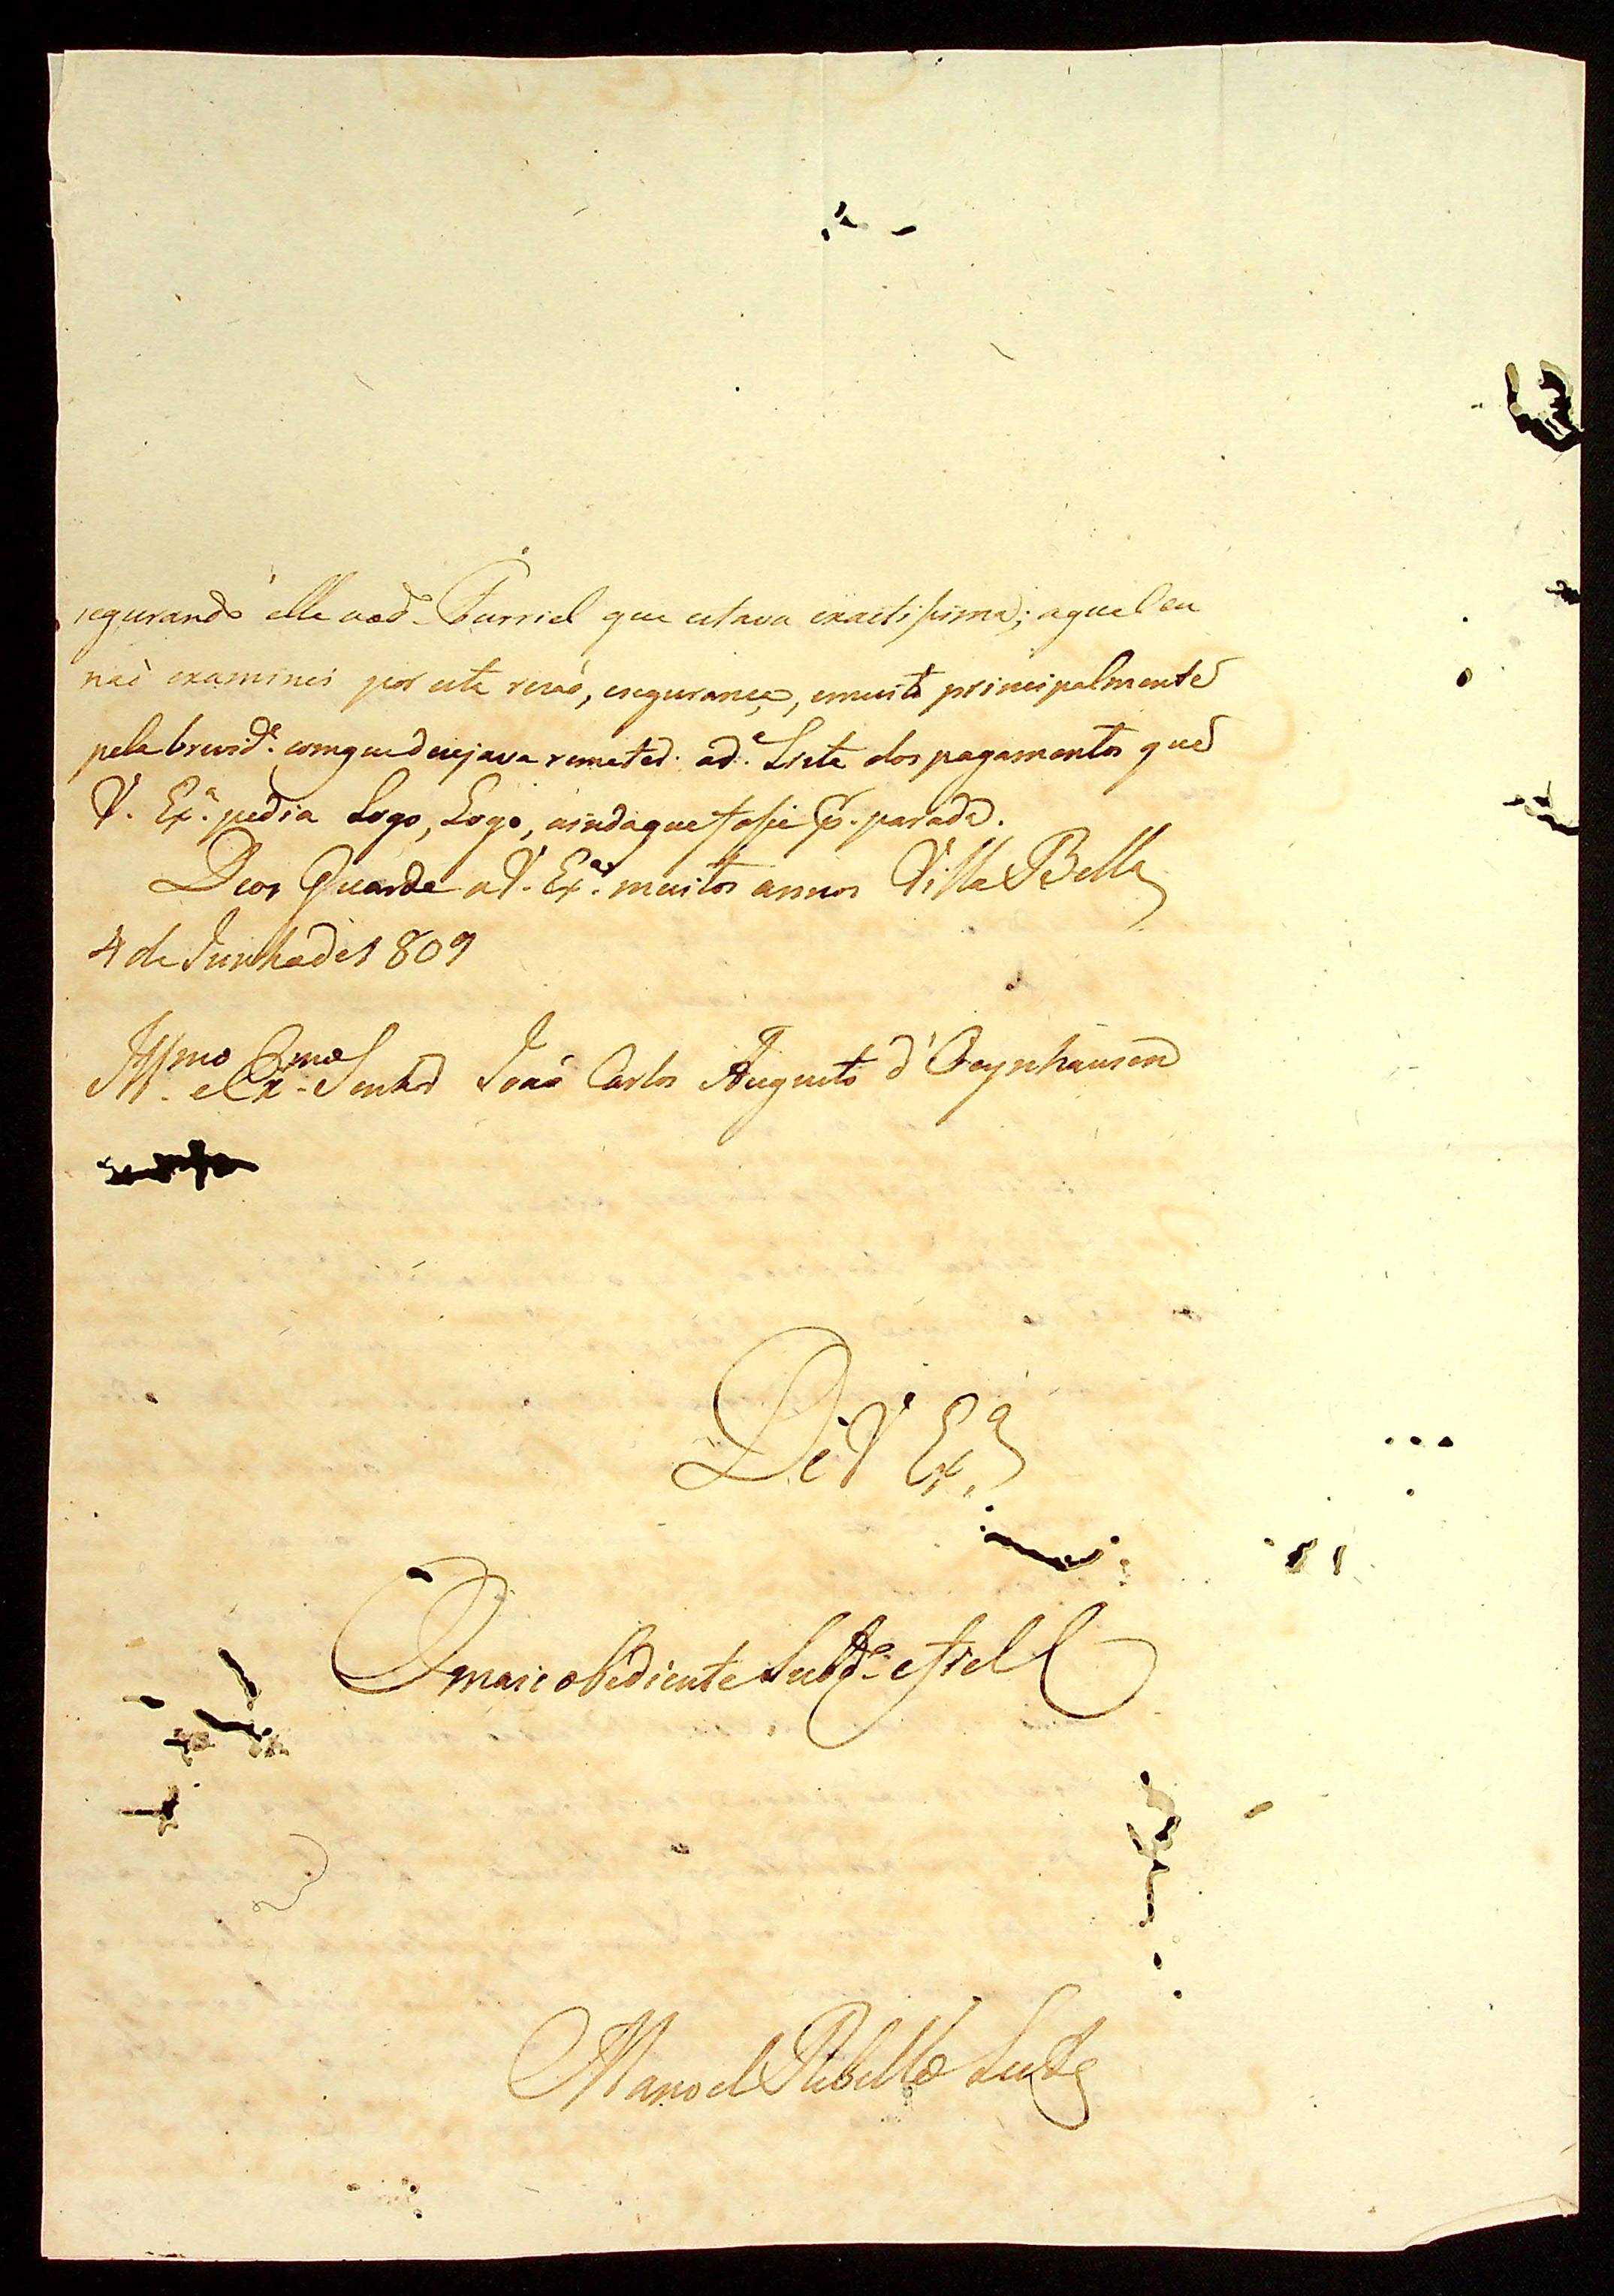 segurando elle ao d.º Furriel que estava exactissima; aqual eu
naõ examinei por esta rezaõ, esegurança, emuito principalmente
pela brevid.e comque dezejava remeter ad.a Lista dos pagamentos que
V. Ex.a pedia Logo, Logo, aindaque fosse p.r parada.
Deos Guarde aV. Ex.a muitos annos Villa Bella
4 de Junho de 1809
Ill.mo e Ex.mo Senhor Joaõ Carlos Augusto d'Oeynhausen
De V Ex.a
O mais obediente Subd.o efiel
Manoel Rebello